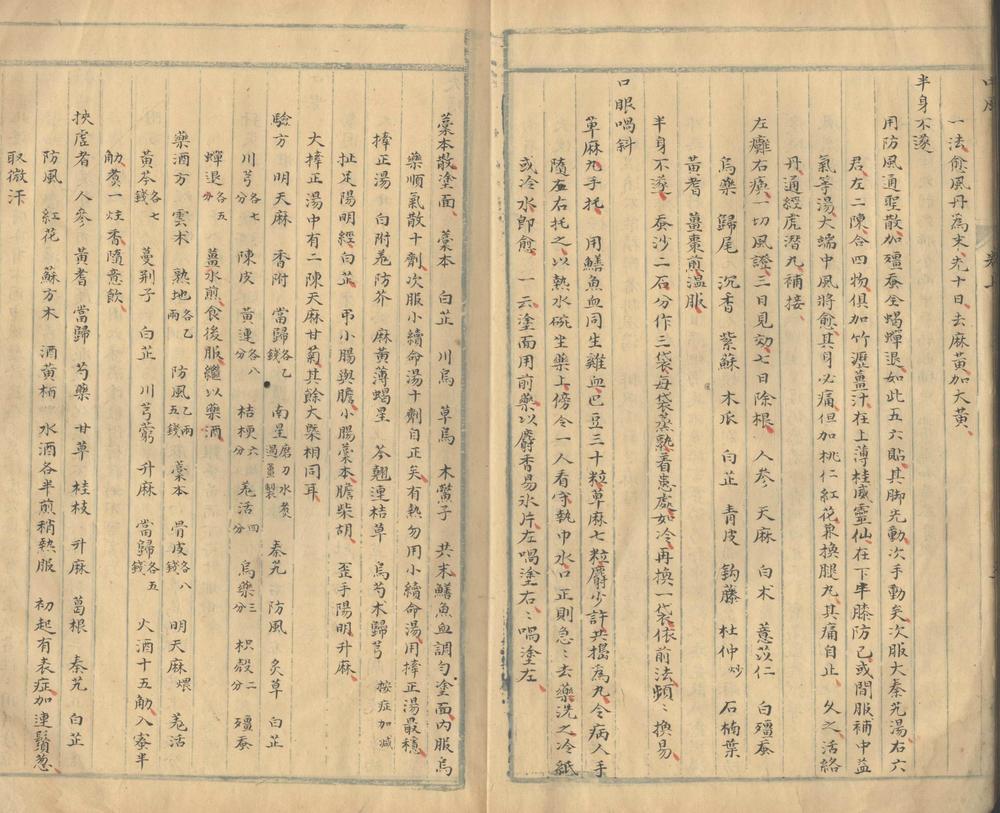 一法愈風丹爲末先十日去麻黃加大黃
半身不遂
用防風通聖散加殭蚕全蝎蟬退如此五六貼其脚先動次手動矣次服大秦艽湯右六
君左二陳合四物俱加竹瀝薑汁在上薄桂威靈仙在下牛膝防己或間服補中益
氣等湯大蠕中風將愈其身必痛但加桃仁紅花兼換腿丸其痛自止久之活絡
丹通經虎潛丸補接
左癱右瘓一切風證三日見効七日除根 人參 天麻 白朮 薏苡仁 白殭蚕
烏藥 歸尾 沉香 紫蘇 木瓜 白芷 青皮 鈎藤 杜仲炒 石楠葉
黃耆 薑棗煎溫服
半身不遂 蚕沙二石分作三袋每袋蒸熟着患處如冷再換一袋依前法頻〻換易
口眼喎斜
草麻丸手托 用鱔魚血同生雞血巴豆三十粒草麻七粒麝少許共搗爲丸令病人手
隨左右托之以熱水碗坐藥上傍令一人看守執巾水口正則急〻去藥洗之冷紙
或冷水即愈 一云塗面用前藥以麝香易氷片左喎塗右〻喎塗左
藁本散塗面 藁本 白芷 川烏 草烏 木鱉子 共末鱔魚血調勻塗面內服烏
藥順氣散十劑次服小續命湯十劑自正矣有熱勿用小續命湯用捧正湯最穩
捧正湯 白附羌防芥 麻黃薄蝎星 芩翹連桔草 烏芍朮歸芎 按症加減
扯足陽明經白芷 弔小腸與膽小腸藁本膽柴胡 歪手陽明升麻
大捧正湯中有二陳天麻甘菊其餘大槩相同耳
驗方 明天麻 香附 當歸各乙錢 南星磨刀水煑過薑製 秦艽 防風 炙草 白芷
川芎各七 陳皮 黃連各八分 桔梗六分 羌活四分 烏藥三分 枳殼二分 殭蚕
蟬退各五分 薑水煎食後服繼以藥酒
藥酒方 雲朮 熟地各乙兩 防風乙兩五錢 藁本 骨皮各八錢 明天麻煨 羌活
黃芩各七錢 蔓荆子 白芷 川芎藭 升麻 當歸各五錢 火酒十五觔入寮半
觔煑一炷香隨意飲
挾虛者 人參 黃耆 當歸 芍藥 甘草 桂枝 升麻 葛根 秦艽 白芷
防風 紅花 蘇方木 酒黃栢 水酒各半煎稍熱服 初起有表症加連鬚葱
取微汗